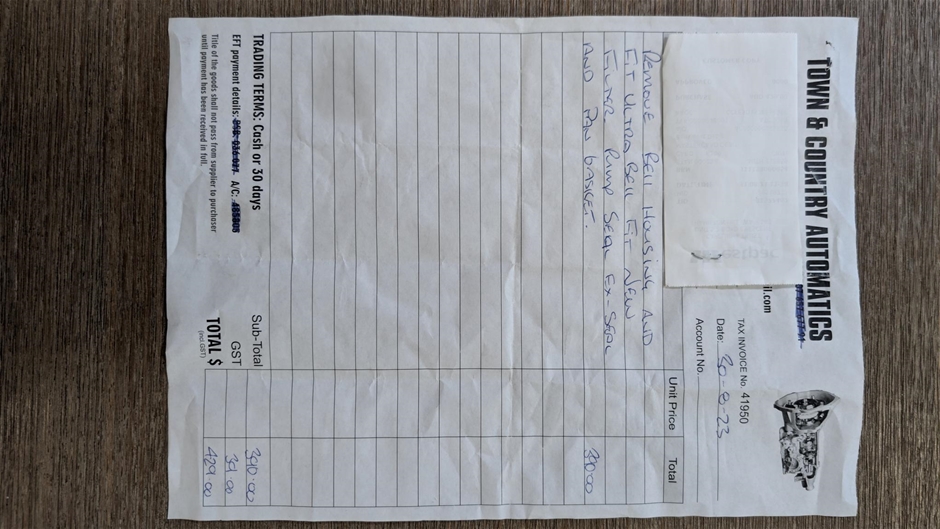 TOWN & COUNTRY AUTOMATICS
il.com
TAX INVOICE No. 41950
Date: 30-8-23
Account No.
Unit Price Total
Remove Bell Housing AND
Fit ULTRA Bell Fit NEW
Filter Pump SEAL Ex-SEAL
AND PAN GASKET. 390.00
TRADING TERMS: Cash or 30 days
EFT payment details: A/C:
Title of the goods shall not pass from supplier to purchaser
until payment has been received in full.
Sub-Total 390.00
GST 39.00
TOTAL $ 429.00
(incl GST)